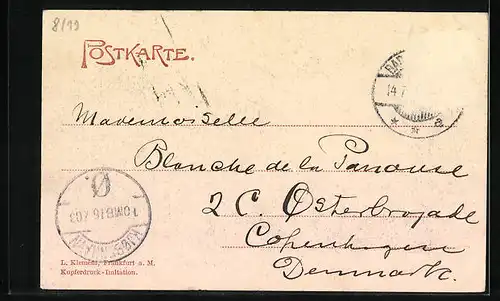 8/19
POSTKARTE.
BAD
14.7
* * a
Mademoiselle
Blanche de la Panouse
2 C. Østerbrogade
Copenhagen
Denmark.
Ø.
L. Klement, Frankfurt a. M.
Kupferdruck-Imitation.